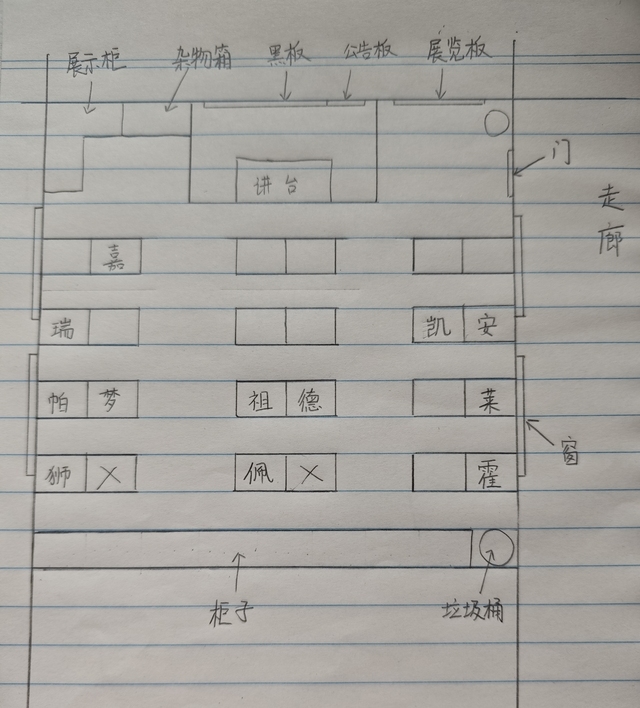 展示柜 杂物箱 黑板 公告板 展览板
门
讲台
走廊
嘉
瑞 凯 安
帕 梦 祖 德 莱
窗
狮 X 佩 X 霍
柜子 垃圾桶